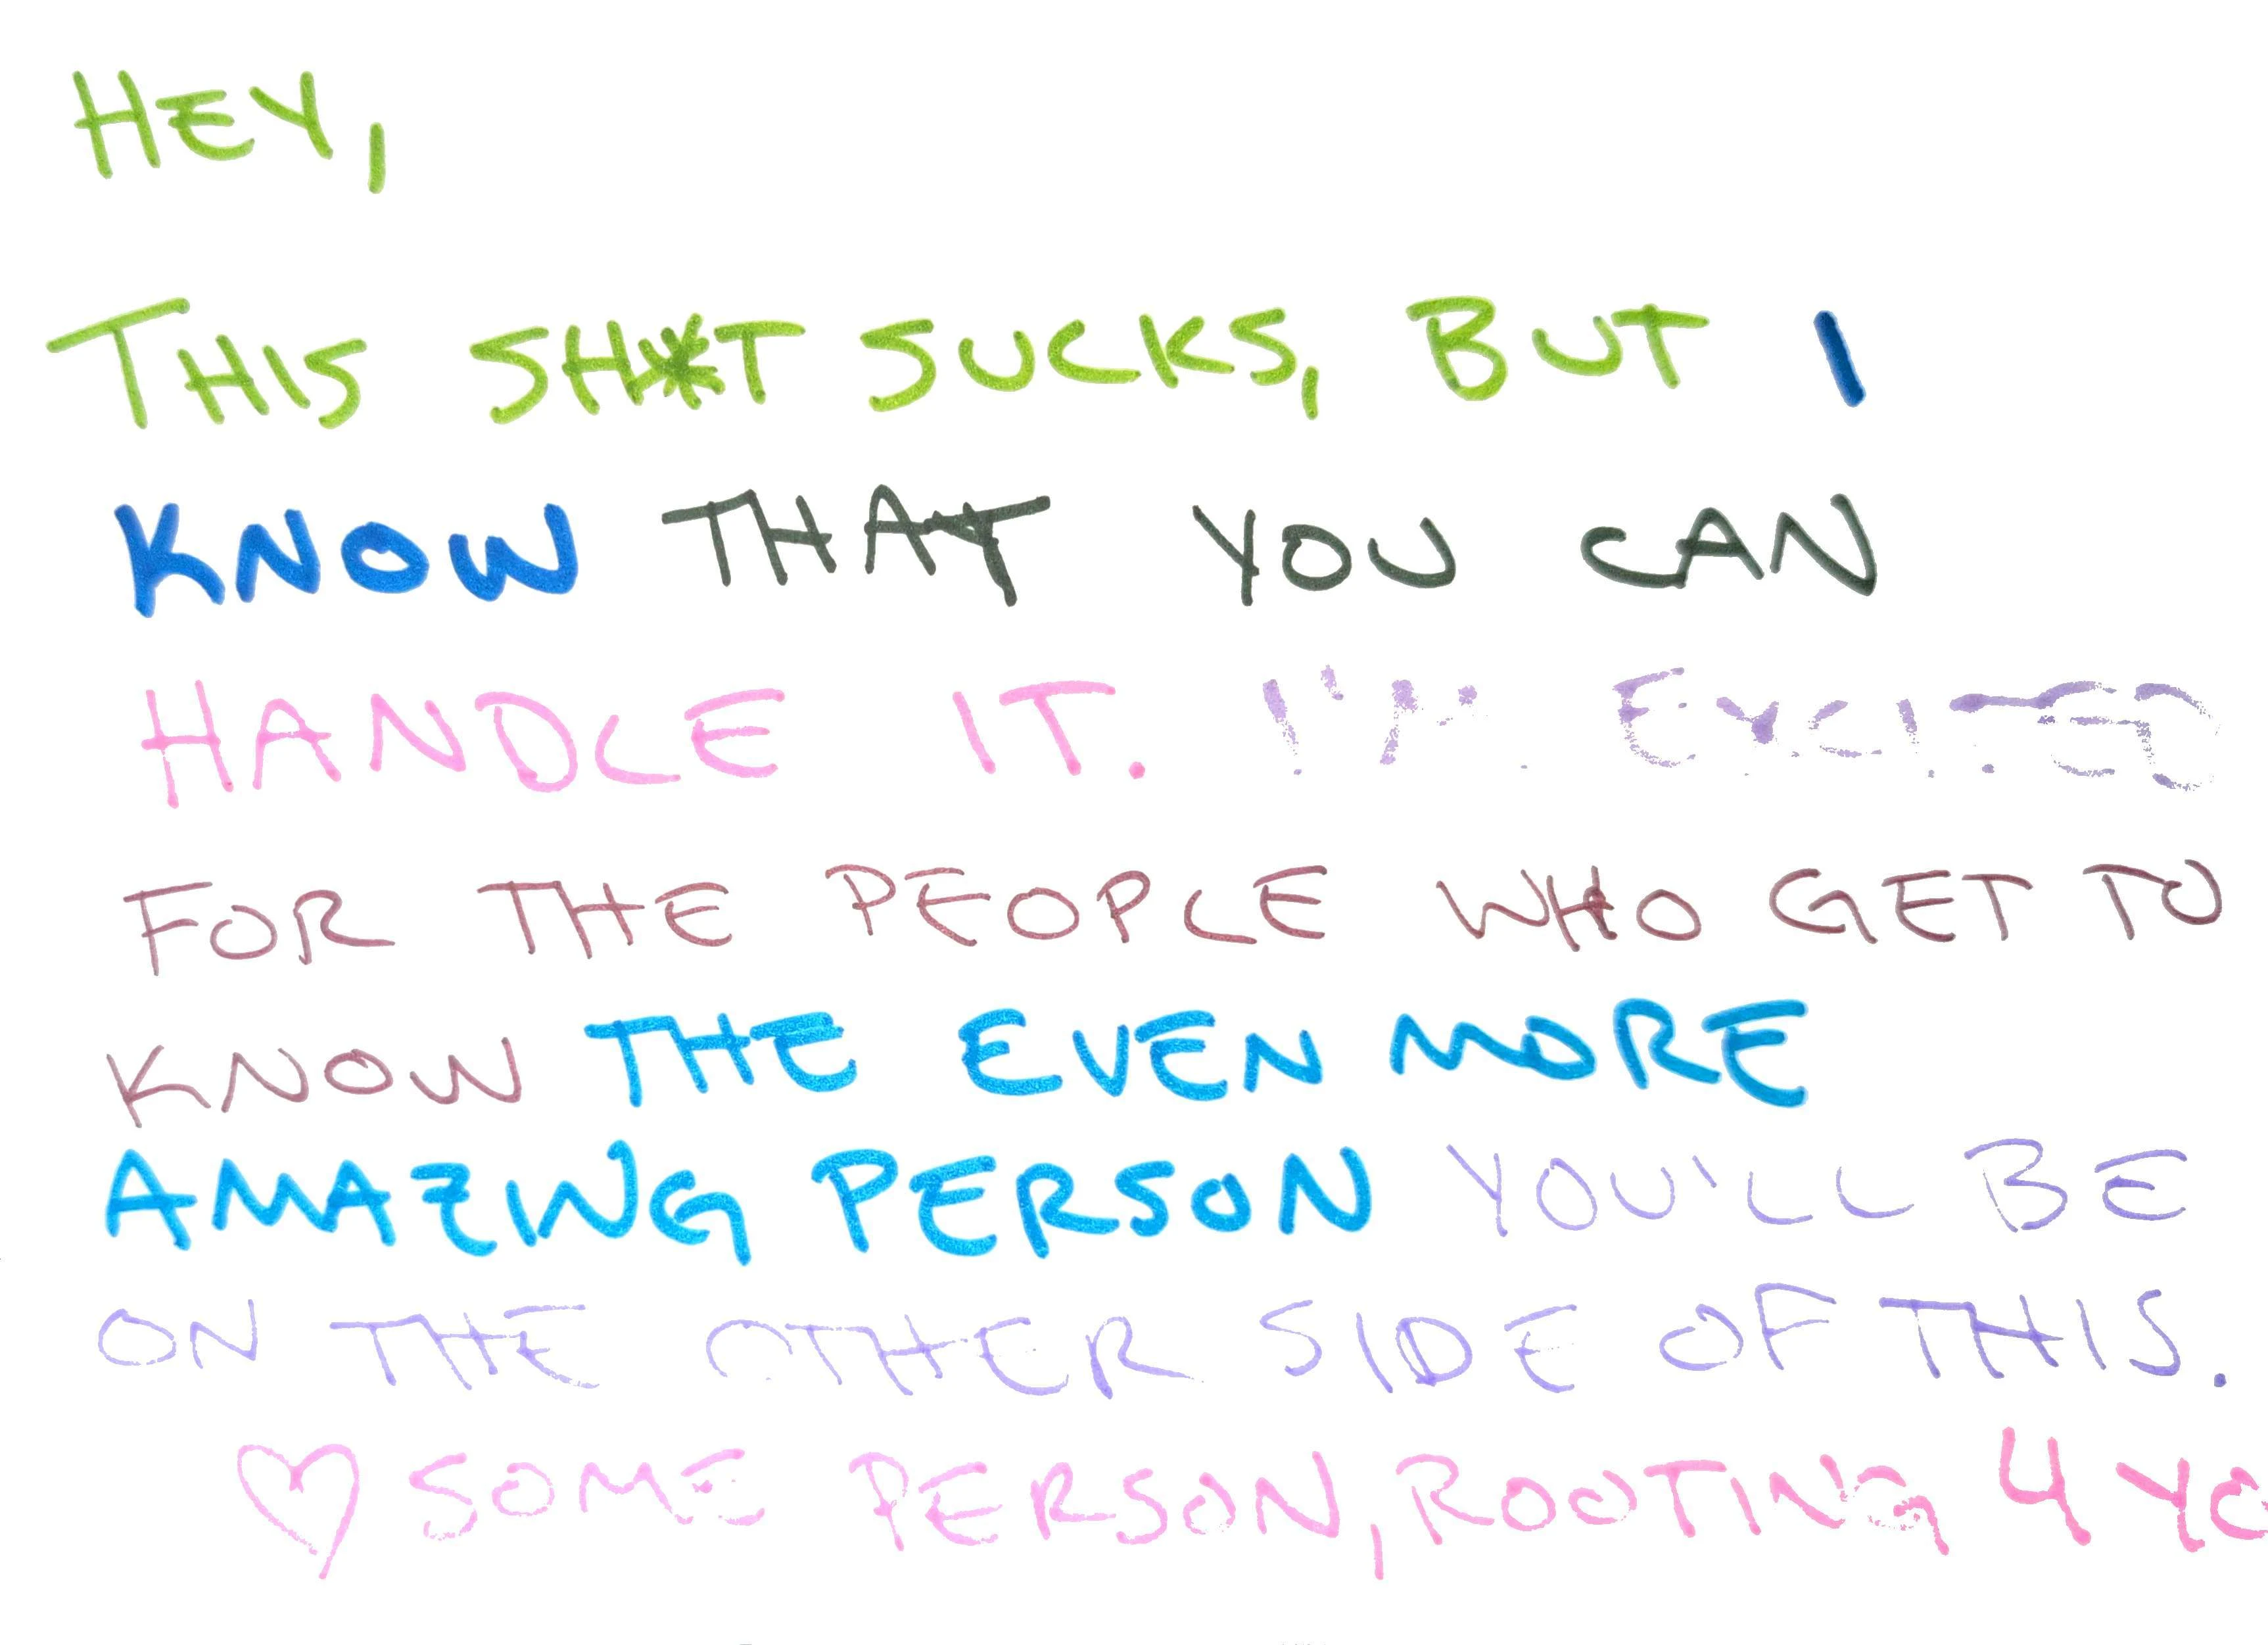 HEY,
THIS SH*T SUCKS, BUT I
KNOW THAT YOU CAN
HANDLE IT. I'M EXCITED
FOR THE PEOPLE WHO GET TO
KNOW THE EVEN MORE
AMAZING PERSON YOU'LL BE
ON THE OTHER SIDE OF THIS.
♡ SOME PERSON, ROOTING 4 YO